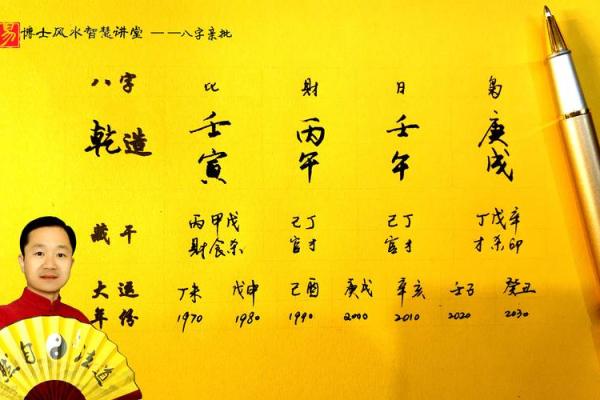 易 博士风水智慧讲堂 ——八字亲批
八字 比 财 日 枭
乾造 壬寅 丙午 壬午 庚戌
藏干 丙甲戊 己丁 己丁 丁戊辛
财食杀 官才 官才 才杀印
大运 丁未 戊申 己酉 庚戌 辛亥 壬子 癸丑
年份 1970 1980 1990 2000 2010 2020 2030
然自法道